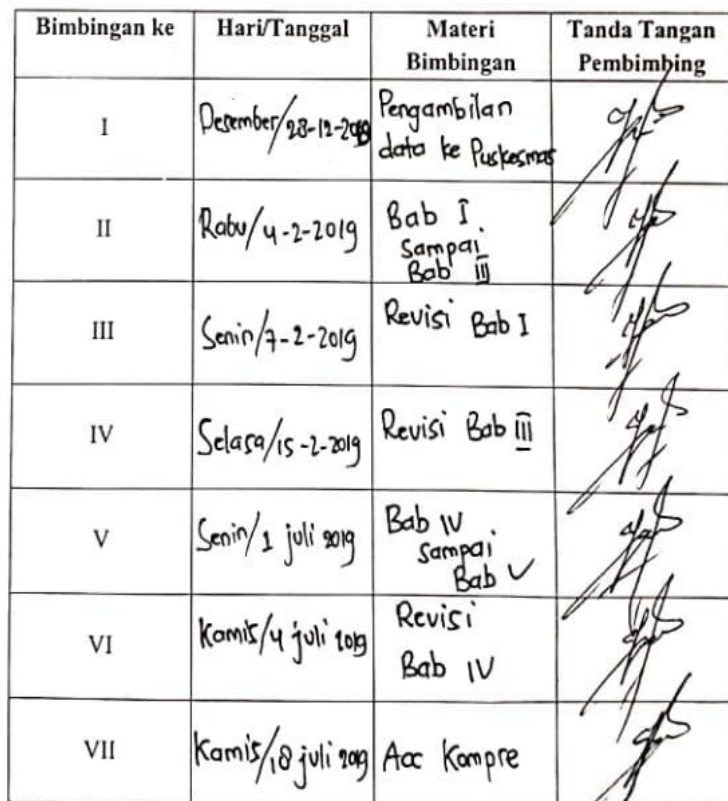 Bimbingan ke Hari/Tanggal Materi Bimbingan Tanda Tangan Pembimbing
I Desember/28-12-2018 Pengambilan data ke Puskesmas
II Rabu/4-2-2019 Bab I Sampai Bab III
III Senin/7-2-2019 Revisi Bab I
IV Selasa/15-2-2019 Revisi Bab III
V Senin/1 juli 2019 Bab IV Sampai Bab V
VI Kamis/4 juli 2019 Revisi Bab IV
VII Kamis/18 juli 2019 Acc Kompre